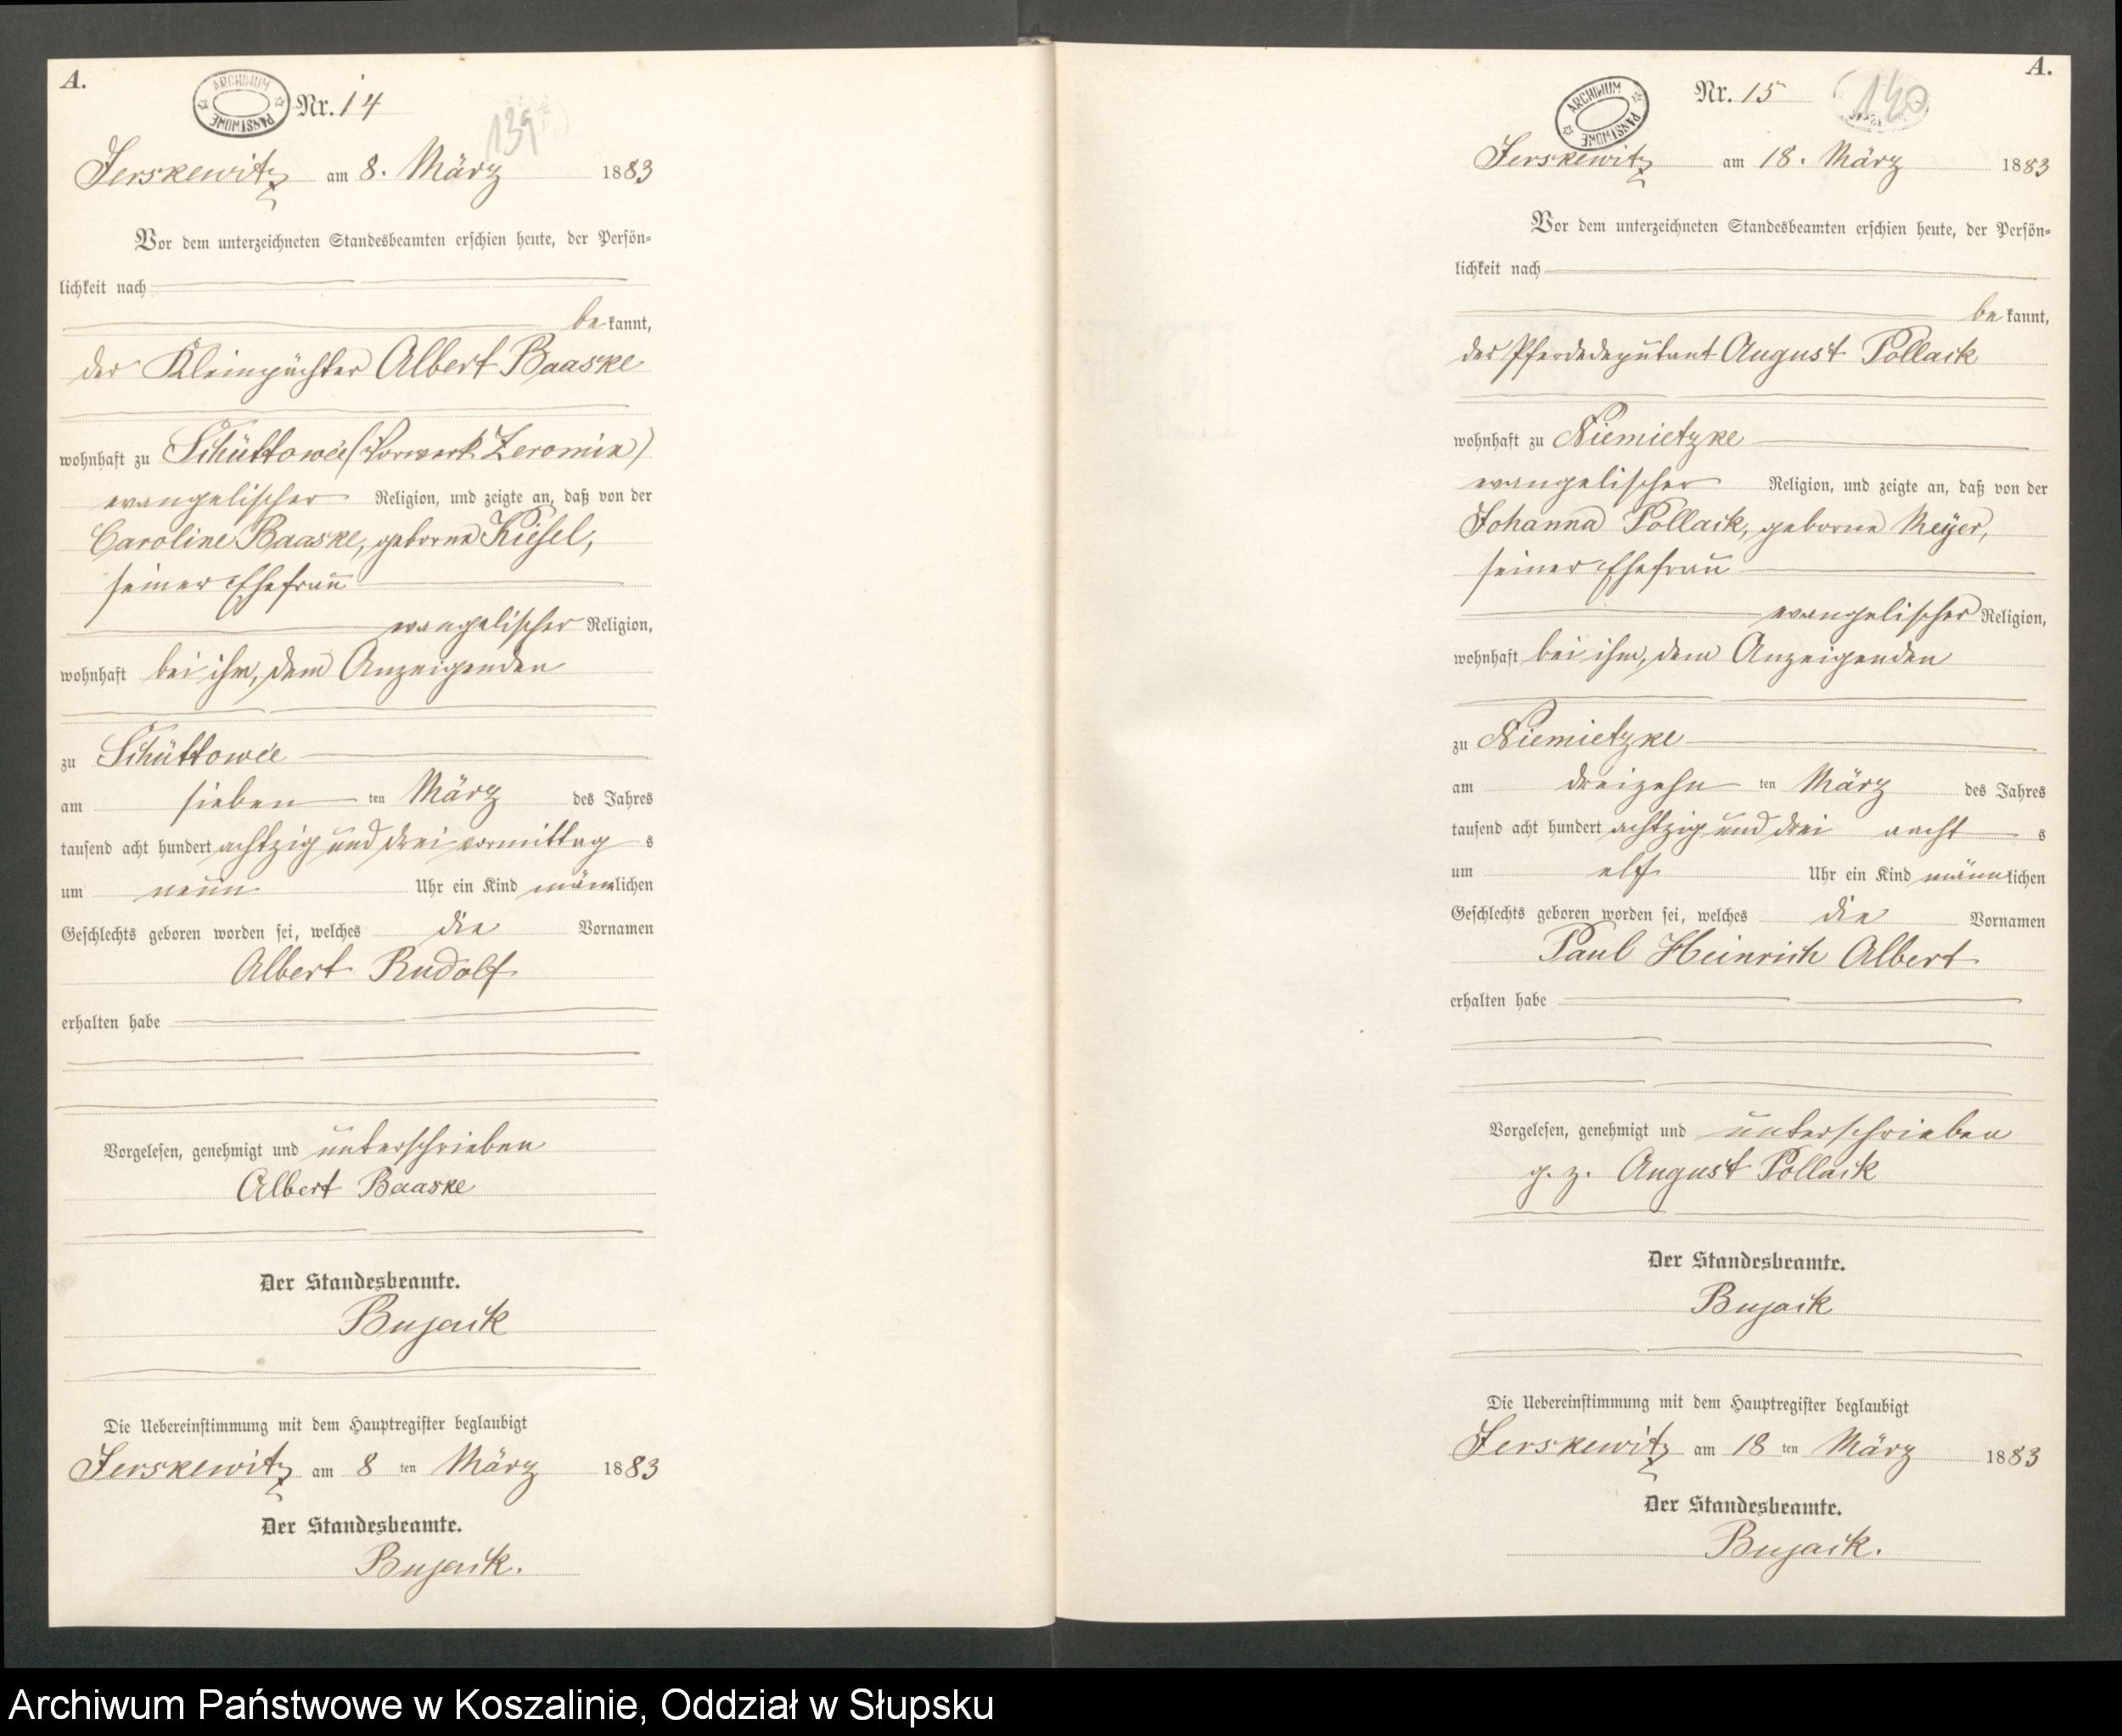 A.
ARCHIWUM PAŃSTWOWE
Nr. 14
139
Jerskewitz am 8. März 1883
Vor dem unterzeichneten Standesbeamten erschien heute, der Persön-
lichkeit nach
be kannt,
der Kleinpächter Albert Baaske
wohnhaft zu Schüttowée (Vorwerk Zeromin)
evangelischer Religion, und zeigte an, daß von der
Caroline Baaske, geborne Kiesel,
seiner Ehefrau
evangelischer Religion,
wohnhaft bei ihm, dem Anzeigenden
zu Schüttowée
am sieben ten März des Jahres
tausend acht hundert achtzig und drei vormittag s
um neun Uhr ein Kind männlichen
Geschlechts geboren worden sei, welches die Vornamen
Albert Rudolf
erhalten habe
Vorgelesen, genehmigt und unterschrieben
Albert Baaske
Der Standesbeamte.
Bujack
Die Uebereinstimmung mit dem Hauptregister beglaubigt
Jerskewitz am 8 ten März 1883
Der Standesbeamte.
Bujack.
A.
ARCHIWUM PAŃSTWOWE
Nr. 15
140
Jerskewitz am 18. März 1883
Vor dem unterzeichneten Standesbeamten erschien heute, der Persön-
lichkeit nach
be kannt,
der Pferdedeputant August Pollack
wohnhaft zu Niemietzke
evangelischer Religion, und zeigte an, daß von der
Johanna Pollack, geborne Meyer,
seiner Ehefrau
evangelischer Religion,
wohnhaft bei ihm, dem Anzeigenden
zu Niemietzke
am dreizehn ten März des Jahres
tausend acht hundert achtzig und drei nacht s
um elf Uhr ein Kind männlichen
Geschlechts geboren worden sei, welches die Vornamen
Paul Heinrich Albert
erhalten habe
Vorgelesen, genehmigt und unterschrieben
g. z. August Pollack
Der Standesbeamte.
Bujack
Die Uebereinstimmung mit dem Hauptregister beglaubigt
Jerskewitz am 18 ten März 1883
Der Standesbeamte.
Bujack.
Archiwum Państwowe w Koszalinie, Oddział w Słupsku